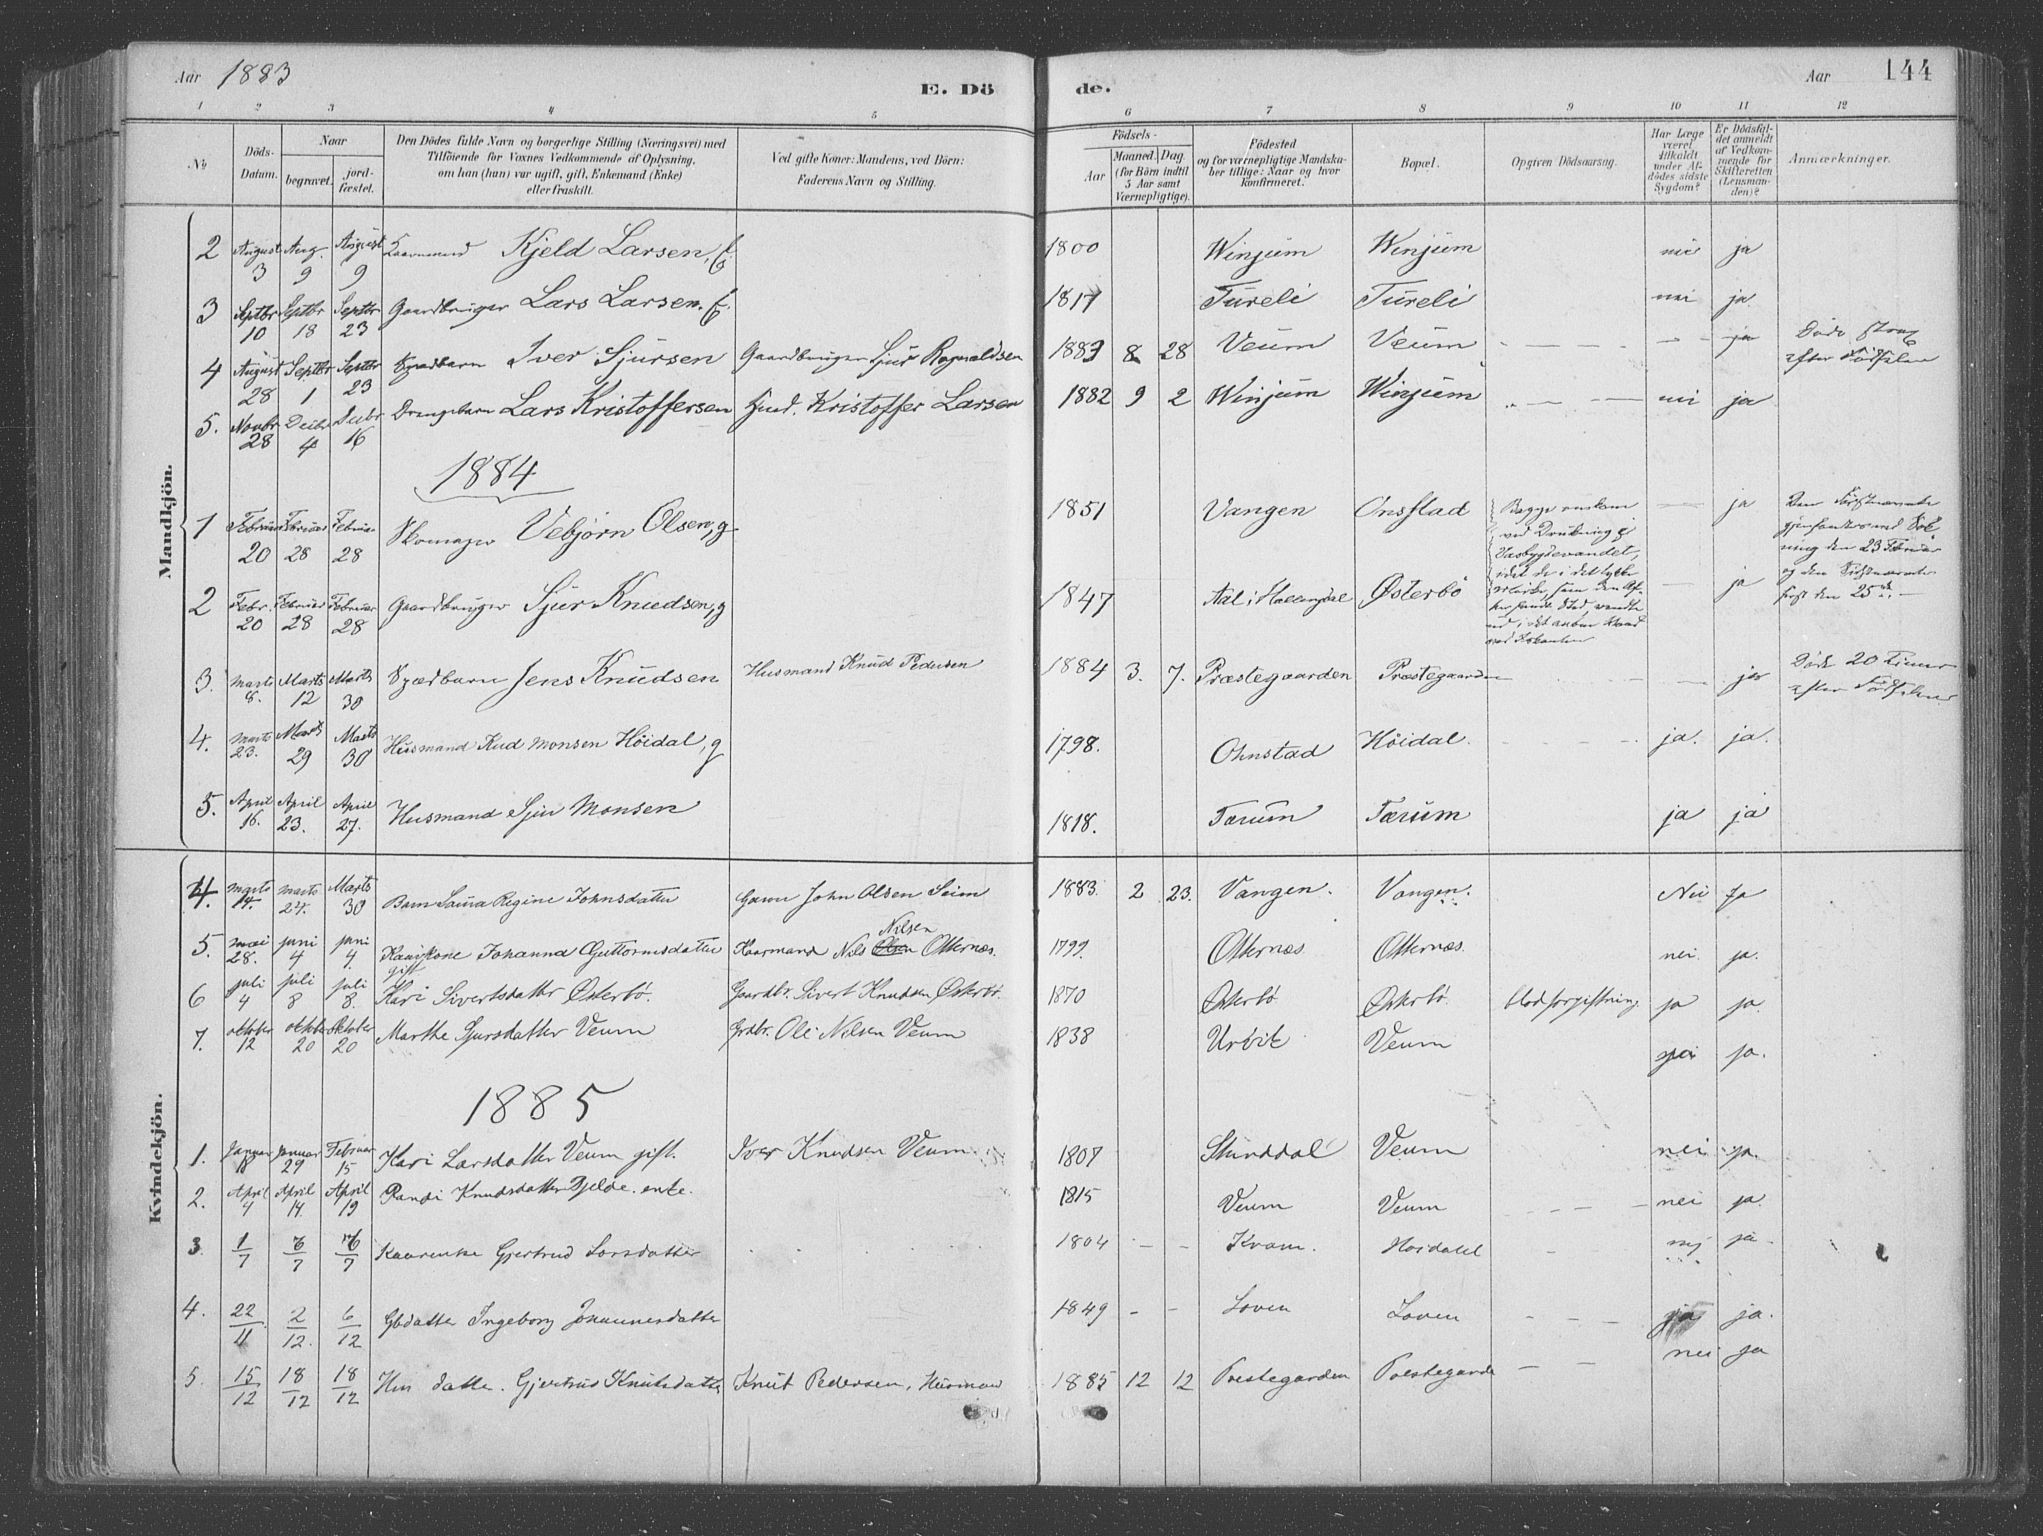 Aar 1883 E. Dö
de. Aar 144
1 2 3 4 5 6 7 8 9 10 11 12
No
Döds-Datum.
Naar begravet. jordfæstet.
Den Dödes fulde Navn og borgerlige Stilling (Næringsvei) med
Tilföiende for Voxnes Vedkommende af Oplysning,
om han (hun) var ugift, gift, Enkemand (Enke)
eller fraskilt.
Ved gifte Koner: Mandens, ved Börn:
Faderens Navn og Stilling.
Födsels-
Aar Maaned. Dag.
(for Börn indtil 5 Aar samt Værnepligtige).
Födested
og for værnepligtige Mandskaber tillige: Naar og hvor konfirmeret.
Bopæl.
Opgiven Dödsaarsag.
Har Læge været tilkaldt under Afdödes sidste Sygdom?
Er Dödsfaldet anmeldt af Vedkommende for Skifteretten (Lensmanden)?
Anmærkninger.
Mandkjön.
2 August 3 Aug. 9 August 9 Kaarmand Kjeld Larsen, E. 1800 Winjum Winjum nei ja
3 Septbr 10 Septbr 18 Septbr 23 Gaardbruger Lars Larsen. E. 1817 Tureli Tureli nei ja
4 August 28 Septbr 1 Septbr 23 Spædbarn Iver Sjursen Gaardbruger Sjur Rognaldsen 1883 8 28 Veum Veum ja Døde strax efter Fødselen
5. Novbr 28 Decbr 4 Decbr 16 Drengebarn Lars Kristoffersen Kristoffer Larsen 1882 9 2 Winjum Winjum nei ja
1884
1 Februar 20 Februar 28 Februar 28 Skomager Vebjørn Olsen, g 1851 Vangen Onstad Begge omkom ved Drukning i Vasbygdevandet, ja Den Førstnævnte gjenfandtes ved Sökning den 23 Februar
2 Febr. 20 Februar 28 Februar 28 Gaardbruger Sjur Knudsen, g 1847 Aal i Hallingdal Østerbö idet de i det tykke ja og den Sidstnævnte först den 25de.
3. Marts 8. Marts 12 Marts 30 Spædbarn Jens Knudsen Husmand Knud Pedersen 1884 3. 7. Præstegaarden Præstegaarden ja Døde 20 Timer efter Fødselen
4. Marts 23. Marts 29 Marts 30 Husmand Knud Monsen Höidal, g 1798. Ohnstad Höidal. ja. ja.
5. April 16. April 23. April 27. Husmand Sjur Monsen 1818. Tærum Tærum ja ja
Kvindekjön.
4. Marts 14. Marts 24. Marts 30 Barn Regine Johnsdatter John Olsen Seim 1883. 2 23. Vangen. Vangen. Nei Ja
5. Mai 28. juni 4 juni 4. Johanna Guttormsdatter gift Kaarmand Nils Olsen Nilsen Otternæs. 1799. Otternæs Otternæs. nei ja.
6 juli 4 juli 8 juli 8. Kari Sivertsdatter Østerbö. Gaardbr. Sivert Knudsen Østerbö. 1870 Østerbö Østerbö. blodforgiftning ja ja.
7. oktober 12 oktober 20 oktober 20 Marthe Sjursdatter Veum Grdbr. Ole Nilsen Veum 1838 Veum ja.
1885
1. Januar 18 Januar 29 Februar 15 Kari Larsdatter Veum gift. Iver Knudsen Veum 1807 Veum nei ja.
2. April 4 April 14. April 19 Randi Knudsdatter Gjelde. enke. 1815 Veum Veum nei ja.
3. 1/7 6/7 6/7 Kaarenke Gjertrud Larsdatter 1804 Kvam. Höidal nej ja.
4. 22/11 2/12. 6/12 Gbdatter Ingeborg Johannesdatter 1849 Loven Loven ja ja.
5. 15/12 18/12 18/12 Hm datter. Gjertrud Knutsdatter Knut Pedersen, Husmand 1885 12 12 Prestegarden Prestegarde nei ja